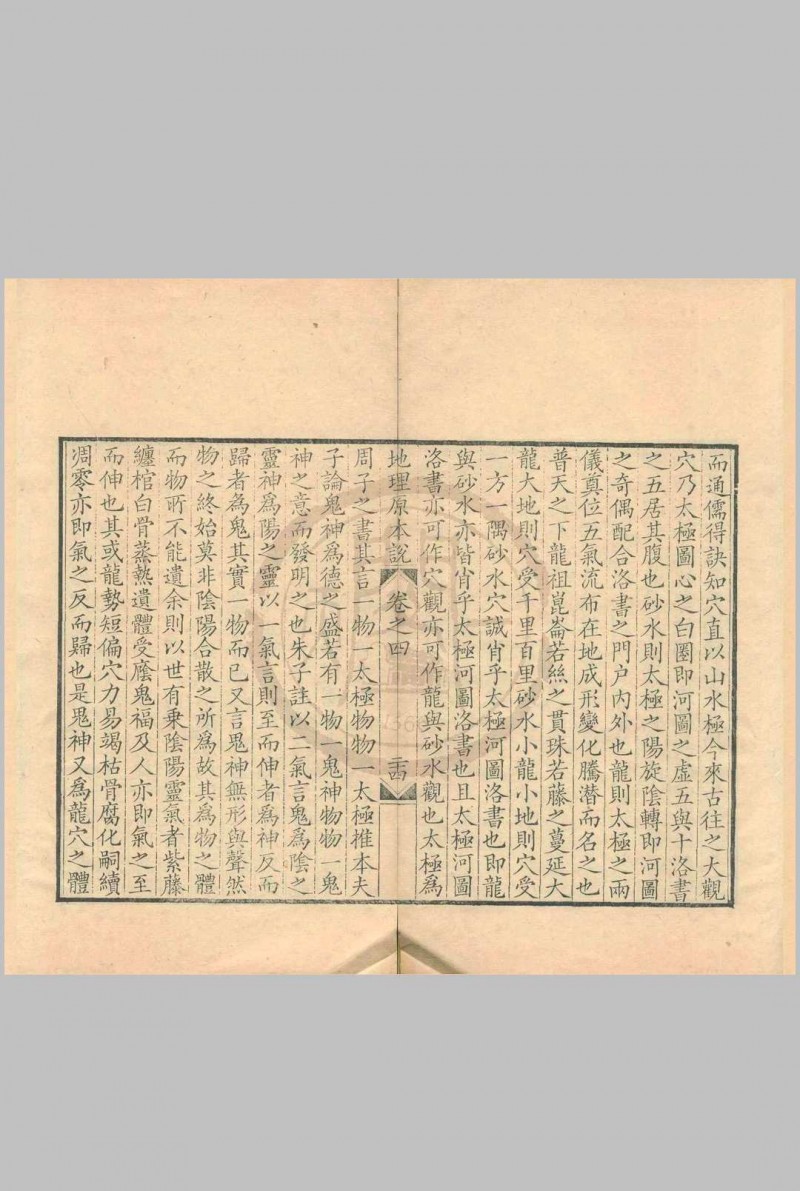 而通儒得訣知穴直以山水極今來古往之大觀
穴乃太極圖心之白圈即河圖之虛五與十洛書
之五居其腹也砂水則太極之陽旋陰轉即河圖
之奇偶配合洛書之門户內外也龍則太極之兩
儀奠位五氣流布在地成形變化騰潛而名之也
普天之下龍祖崑崙若絲之貫珠若藤之蔓延大
龍大地則穴受千里百里砂水小龍小地則穴受
一方一隅砂水穴誠肖乎太極河圖洛書也即龍
與砂水亦皆肖乎太極河圖洛書也且太極河圖
洛書亦可作穴觀亦可作龍與砂水觀也太極爲
地理原本說 卷之四
周子之書其言一物一太極物物一太極推本夫
子論鬼神爲德之盛若有一物一鬼神物物一鬼
神之意而發明之也朱子註以二氣言鬼爲陰之
靈神爲陽之靈以一氣言則至而伸者爲神反而
歸者為鬼其實一物而已又言鬼神無形與聲然
物之終始莫非陰陽合散之所爲故其爲物之體
而物所不能遺余則以世有乗陰陽靈氣者紫藤
纏棺白骨蒸熱遺體受廕鬼福及人亦即氣之至
而伸也其或龍勢短偏穴力易竭枯骨腐化嗣續
凋零亦即氣之反而歸也是鬼神又爲龍穴之體